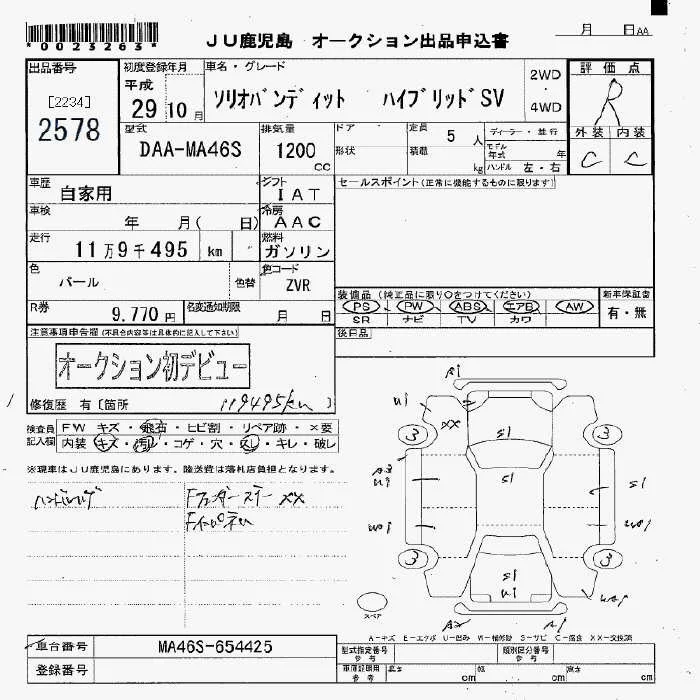 *00023263*
JU鹿児島 オークション出品申込書
月 日AA
出品番号
[2234]
2578
初度登録年月
平成
29 10 月
車名・グレード
ソリオバンディット ハイブリッドSV
2WD
・
4WD
評価点
R
外装 内装
C C
型式
DAA-MA46S
排気量
1200
cc
ドア
形状
定員 5 人
積載 kg
ディーラー・並行
モデル年式 年
ハンドル 左・右
車歴
自家用
シフト
IAT
セールスポイント(正常に機能するものに限ります)
車検
年 月( 日)
冷房
AAC
走行
11万9千495 km
燃料
ガソリン
色
パール
色替
色コード
ZVR
R券
9.770円
名変通知期限
月 日
装備品(純正品に限り○をつけてください)
PS PW ABS エアB AW
SR ナビ TV カワ
新車保証書
有・無
後日品
注意事項申告欄(不具合内容等は具体的に記入して下さい)
オークション初デビュー
修復歴 有〔箇所
119495km 〕
検査員記入欄
FW キズ・飛石・ヒビ割・リペア跡・×要
内装 キズ・汚れ・コゲ・穴・スレ・キレ・破レ
※現車はJU鹿児島にあります。陸送費は落札店負担となります。
XX
A1
U1
XX
S1
3
3
A2
U1
S1
S1
W01
3
3
S1
U1
スペア
A2
A1
A-キズ E-エクボ U-凹み W-補修跡 S-サビ C-腐食 XX-交換済
車台番号
MA46S-654425
登録番号
型式指定番号
参考
類別区分番号
参考
車庫証明用
参考
長さ cm
幅 cm
高さ cm